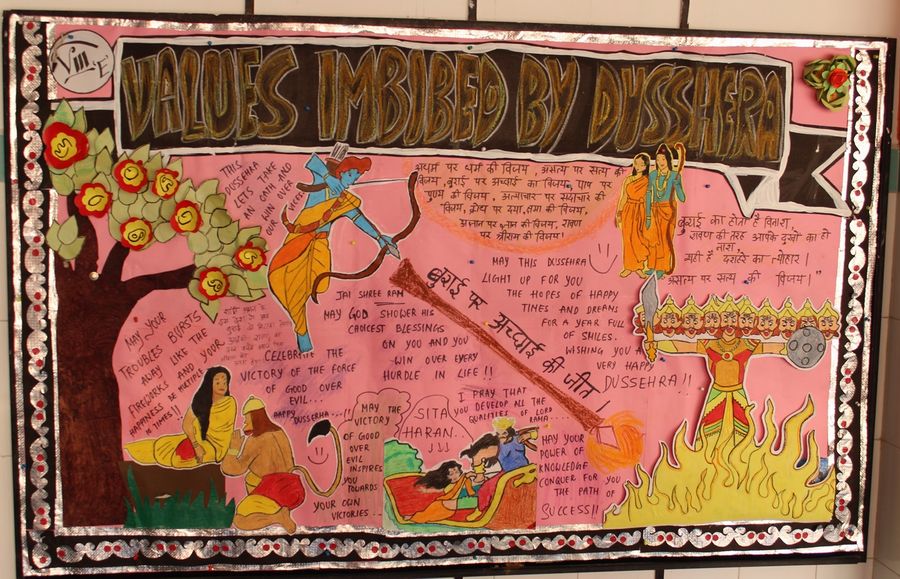 VIII E
VALUES IMBIBED BY DUSSHERA
THIS
DUSSEHRA
LETS TAKE
AN OATH AND
WIN OVER
OUR
VICES
अधर्म पर धर्म की विजय, असत्य पर सत्य की
विजय, बुराई पर अच्छाई का विजय, पाप पर
पुण्य की विजय, अत्याचार पर सदाचार की
विजय, क्रोध पर दया, क्षमा की विजय,
अज्ञान पर ज्ञान की विजय, रावण
पर श्रीराम की विजय।
बुराई का होता है विनाश,
रावण की तरह आपके दुखों का हो
नाश,
यही है दशहरे का त्यौहार।
असत्य पर सत्य की विजय।"
MAY THIS DUSSEHRA
LIGHT UP FOR YOU
THE HOPES OF HAPPY
TINES AND DREAMS
FOR A YEAR FULL
OF SMILES.
WISHING YOU A
VERY HAPPY
DUSSEHRA!!
बुराई पर अच्छाई की जीत।
JAI SHREE RAM
MAY GOD SHOWER HIS
CHOICEST BLESSINGS
ON YOU AND YOU
WIN OVER EVERY
HURDLE IN LIFE!!
MAY YOUR
TROUBLES BURSTS
AWAY LIKE THE
FIREWORKS AND YOUR
HAPPINESS BE MULTIPLE
TIMES!!
CELEBRATE THE
VICTORY OF THE FORCE
OF GOOD OVER
EVIL...
HAPPY DUSSERHA...!!
MAY THE
VICTORY
OF GOOD
OVER
EVIL
INSPIRES
YOU
TOWARDS
YOUR OWN
VICTORIES...
SITA
HARAN..
!!!
I PRAY THAT
YOU DEVELOP ALL THE
QUALITIES OF LORD
RAMA....
MAY YOUR
POWER OF
KNOWLEDGE
CONQUER FOR YOU
THE PATH OF
SUCCESS!!